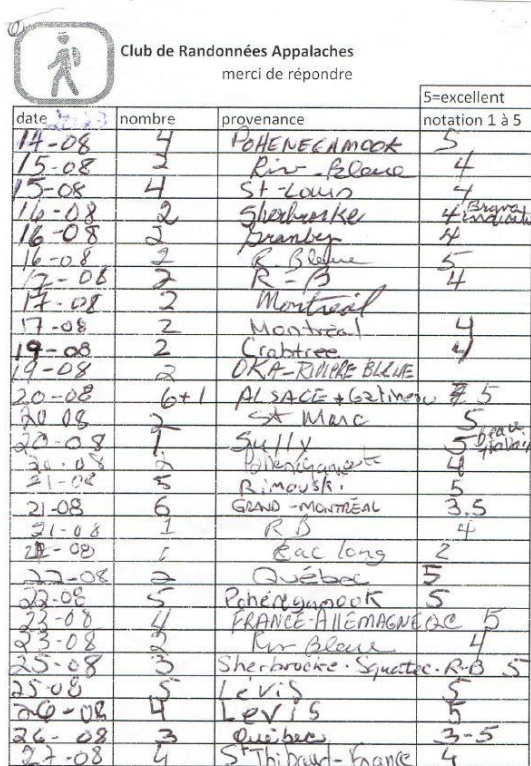 Club de Randonnées Appalaches
merci de répondre
5=excellent
date 2023 nombre provenance notation 1 à 5
14-08 4 POHENEGAMOOK 5
15-08 2 Riv-Bleue 4
15-08 4 St-Louis 4
16-08 2 Sherbrooke 4 Bravo
16-08 2 Granby 4
16-08 2 R Bleue 5
17-08 2 R-B 4
17-08 2 Montréal
17-08 2 Montréal 4
19-08 2 Crabtree 4
19-08 2 OKA-RIVIÈRE BLEUE
20-08 6+1 ALSACE + Gatineau 5
20 08 2 St Marc 5
20-08 1 Sully 5 beau
20-08 2 Pohénégamook 4
21-08 5 Rimouski. 5
21-08 6 GRAND-MONTRÉAL 3.5
21-08 1 R B 4
22-08 1 Lac long 2
22-08 2 Québec 5
22-08 5 Pohénégamook 5
23-08 4 FRANCE-AllEMAGNE QC 5
23-08 2 Riv-Bleue 4
25-08 3 Sherbrooke-Squatec-R-B 5
25-08 5 Lévis 5
26-08 4 Levis 5
26-08 3 Québec 3-5
27-08 4 St Thibaud-France 4